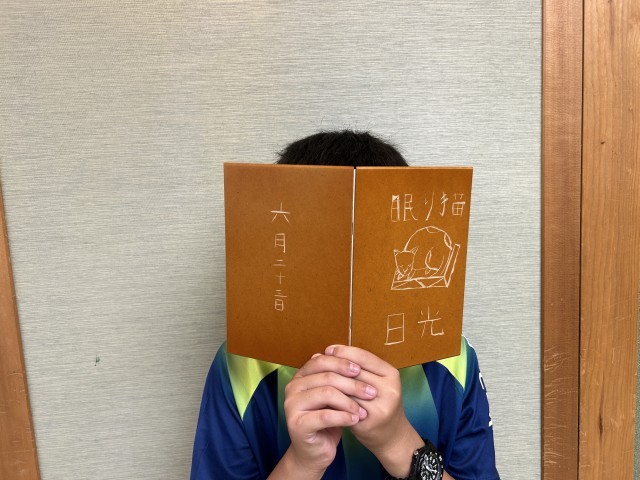 六月二十三日
眠り猫
日光